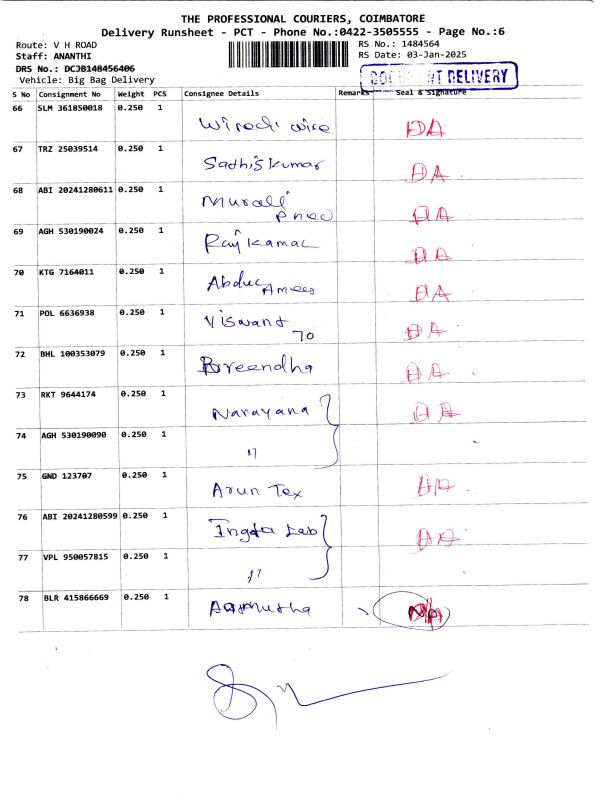 THE PROFESSIONAL COURIERS, COIMBATORE
Delivery Runsheet - PCT - Phone No.:0422-3505555 - Page No.:6
Route: V H ROAD
Staff: ANANTHI
DRS No.: DCJB148456406
Vehicle: Big Bag Delivery
RS No.: 1484564
RS Date: 03-Jan-2025
DOCUMENT DELIVERY
S No Consignment No Weight PCS Consignee Details Remarks Seal & Signature
66 SLM 361850018 0.250 1 DA
67 TRZ 25039514 0.250 1 Sathiskumar DA
68 ABI 20241280611 0.250 1 Murali DA
69 AGH 530190024 0.250 1 Rajkamal DA
70 KTG 7164011 0.250 1 Abdul Ameer DA
71 POL 6636938 0.250 1 Viswant 70 DA
72 BHL 100353079 0.250 1 DA
73 RKT 9644174 0.250 1 Narayana DA
74 AGH 530190090 0.250 1 "
75 GND 123707 0.250 1 Arun Tex DA
76 ABI 20241280599 0.250 1 Lab DA
77 VPL 950057815 0.250 1 "
78 BLR 415866669 0.250 1